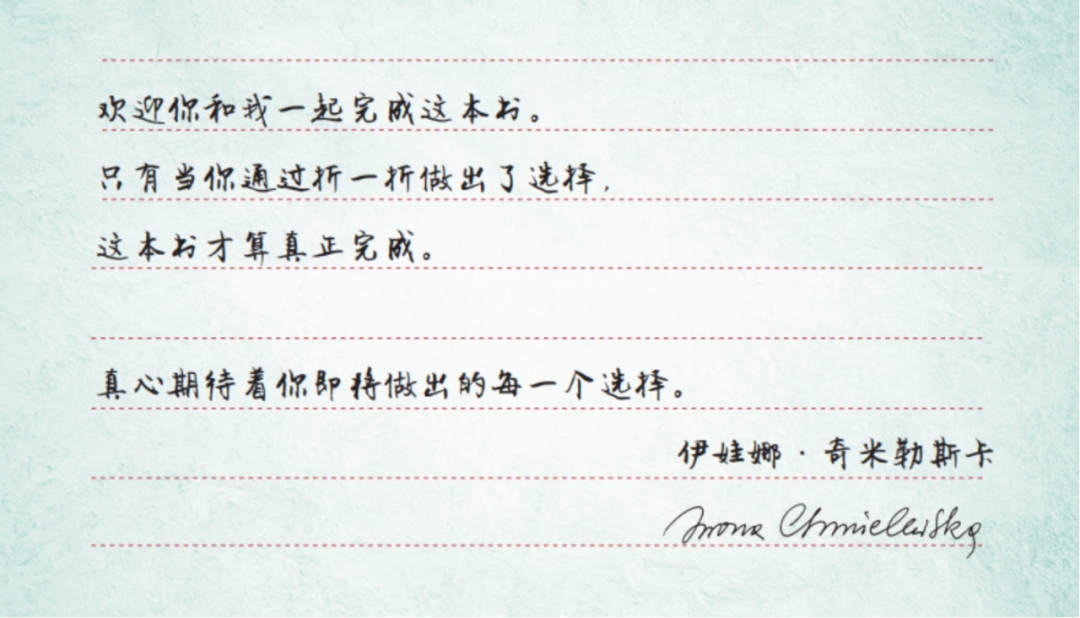 欢迎你和我一起完成这本书。
只有当你通过折一折做出了选择，
这本书才算真正完成。
真心期待着你即将做出的每一个选择。
伊娃娜·奇米勒斯卡
Iwona Chmielewska